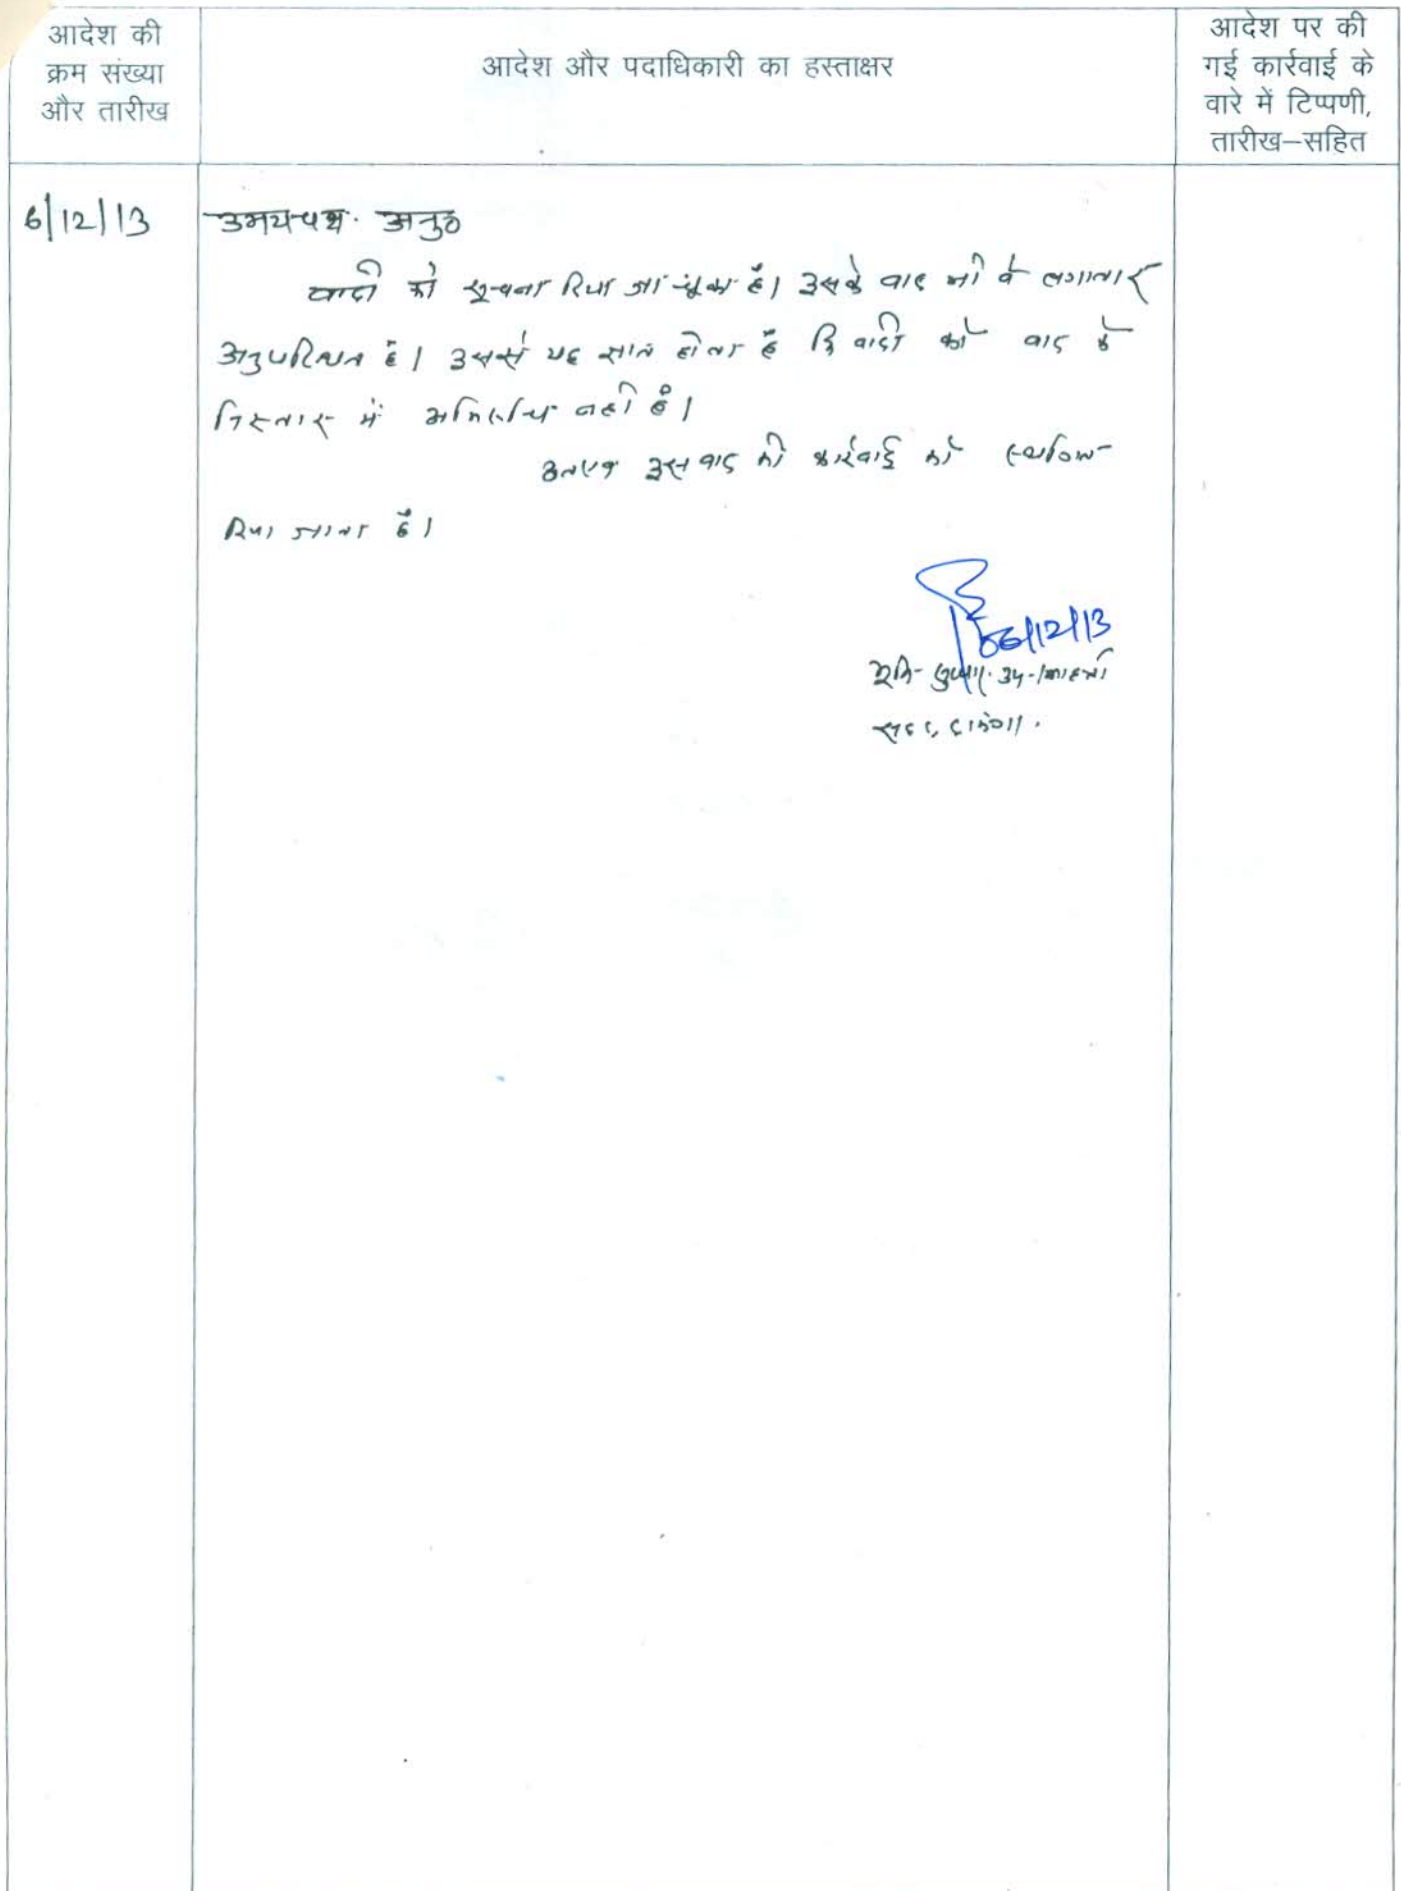 आदेश की
क्रम संख्या
और तारीख
आदेश और पदाधिकारी का हस्ताक्षर
आदेश पर की
गई कार्रवाई के
वारे में टिप्पणी,
तारीख–सहित
6/12/13
उभयपक्ष अनु०
वादी को सूचना दिया जा चूका है। उसके बाद भी वे लगातार
अनुपस्थित है। उससे यह ज्ञात होता है कि वादी को वाद के
निस्तार में अभिरूचि नहीं है।
अतएव इस वाद की कार्रवाई को स्थगित
किया जाता है।
06/12/13
भूमि सुधार उप-समाहर्ता
सदर, दरभंगा.